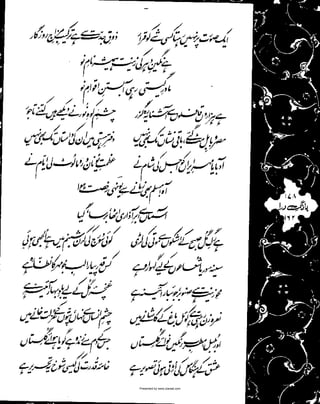 ایک صورت پر نہیں رہتا کسی شے کو قرار ذوقِ جدت سے ہے ترکیبِ مزاجِ روزگار
ہے نگینِ دہر کی زینت ہمیشہ نامِ نو
مادرِ گیتی رہی آبستنِ اقوامِ نو
ہے ہزاروں قافلوں سے آشنا یہ رہگزر چشمِ کوہِ نور نے دیکھے ہیں کتنے تاجور
مصر و بابل مٹ گئے باقی نشاں تک بھی نہیں دفترِ ہستی میں ان کی داستاں تک بھی نہیں
آ دبایا مہرِ ایراں کو اجل کی شام نے عظمتِ یونان و روما لوٹ لی ایام نے
آہ! مسلم بھی زمانے سے یونہی رخصت ہوا
آسماں سے ابرِ آذاری اٹھا، برسا، گیا
ہے رگِ گل صبح کے اشکوں سے موتی کی لڑی کوئی سورج کی کرن شبنم میں ہے الجھی ہوئی
سینۂ دریا شعاعوں کے لیے گہوارہ ہے کس قدر پیارا لبِ جو مہر کا نظارہ ہے
محوِ زینت ہے صنوبر، جوئبار آئینہ ہے غنچۂ گل کے لیے بادِ بہار آئینہ ہے
نعرہ زن رہتی ہے کوئل باغ کے کاشانے میں چشمِ انساں سے نہاں، پتوں کے عزلت خانے میں
اور بلبل، مطربِ رنگیں نوائے گلستاں جس کے دم سے زندہ ہے گویا ہوائے گلستاں
عشق کے ہنگاموں کی اڑتی ہوئی تصویر ہے خامۂ قدرت کی کیسی شوخ یہ تحریر ہے
بانگِ درا
Presented by www.ziaraat.com